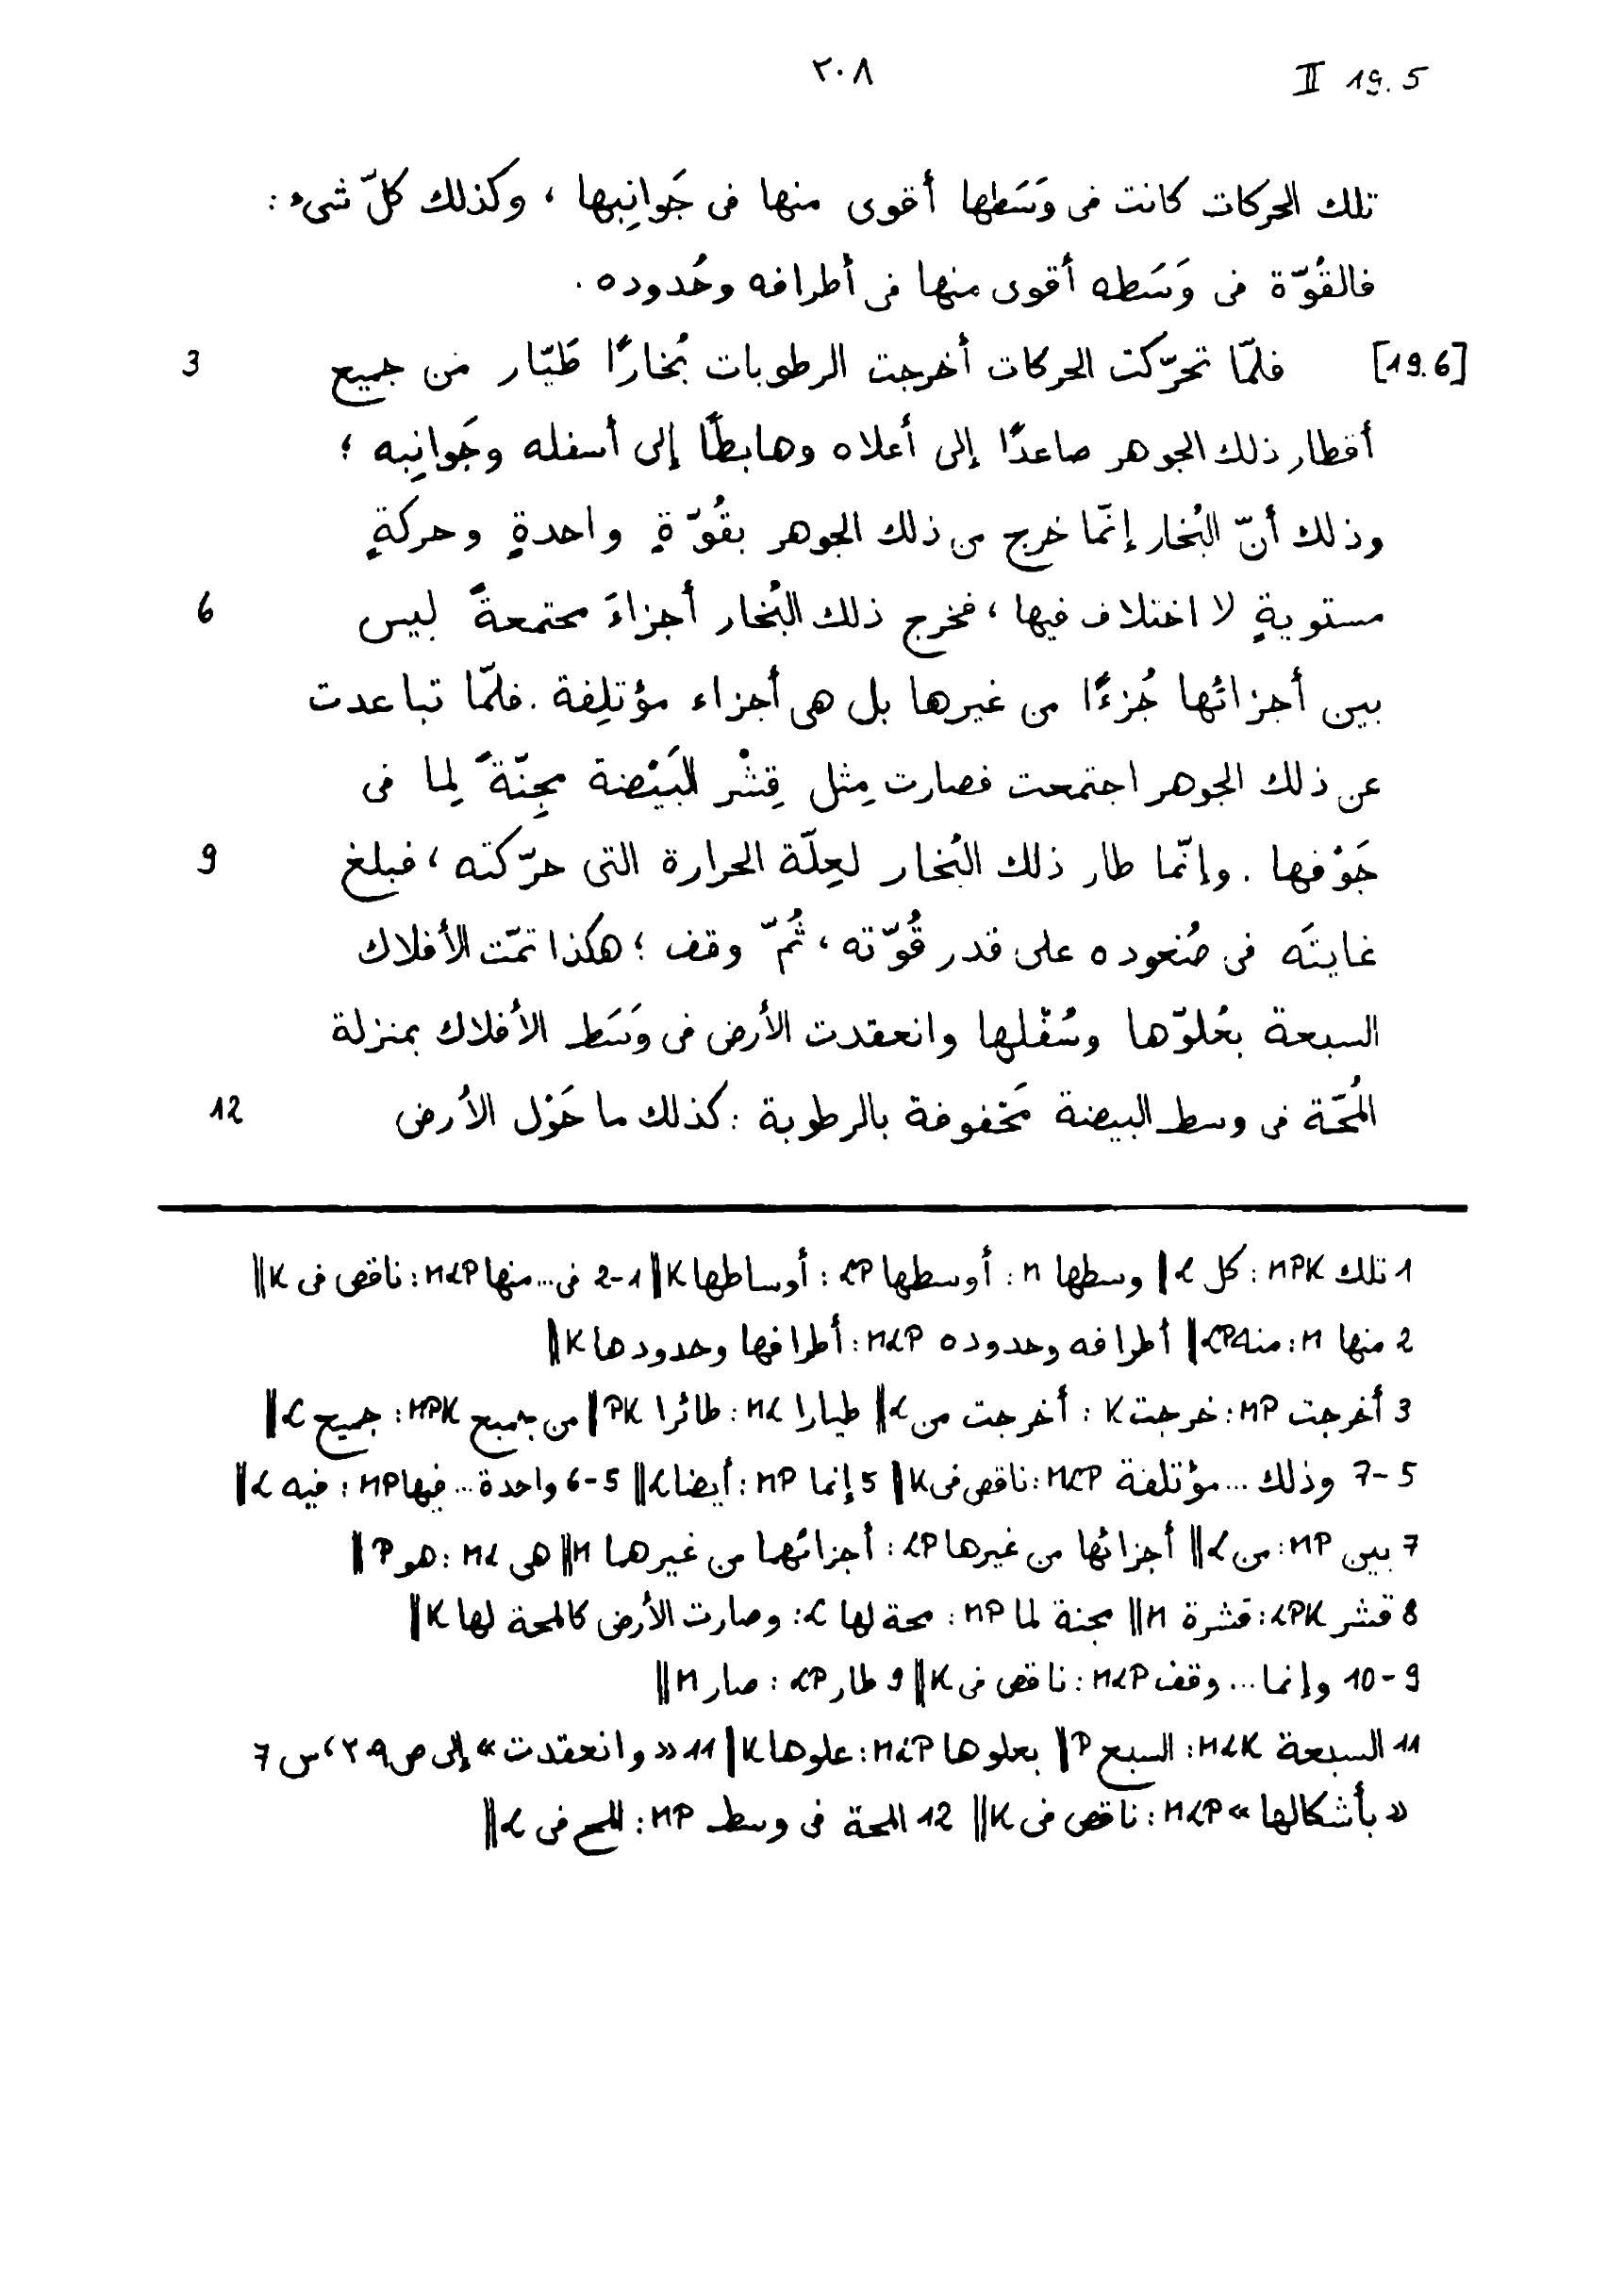 ٢٠٨ II 19.5
تلك الحركات كانت فى وَسَطها أقوى منها فى جَوانِبها ، وكذلك كلّ شىء :
فالقُوّة فى وَسَطه أقوى منها فى أطرافه وحُدوده .
[19.6] فلمّا تحرّكت الحركات أخرجت الرطوبات بُخارًا طَيّار من جميع 3
أقطار ذلك الجوهر صاعدًا إلى أعلاه وهابطًا إلى أسفله وجَوانِبه ؛
وذلك أنّ البُخار إنّما خرج من ذلك الجوهر بقُوّةٍ واحدةٍ وحركةٍ
مستويةٍ لا اختلاف فيها ، فخرج ذلك البُخار أجزاءَ مجتمعةً ليس 6
بين أجزائها جُزءًا من غيرها بل هى أجزاء مؤتلِفة . فلمّا تباعدت
عن ذلك الجوهر اجتمعت فصارت مِثل قِشْر البَيْضة مجِنّةً لِما فى
جَوْفها . وإنّما طار ذلك البُخار لعِلّة الحرارة التى حرّكته ، فبلغ 9
غايتَه فى صُعوده على قدر قُوّته ، ثُمّ وقف ؛ هكذا تمّت الأفلاك
السبعة بعُلوّها وسُفْلها وانعقدت الأرض فى وَسَط الأفلاك بمنزلة
المُحّة فى وسط البيضة مَحْفوفة بالرطوبة : كذلك ما حَوْل الأرض 12
1 تلك MPK : كل L ‖ وسطها M : أوسطها LP : أوساطها K ‖ 1-2 فى... منها MLP : ناقص فى K ‖
2 منها M : منه LP ‖ أطرافه وحدوده MLP : أطرافها وحدودها K ‖
3 أخرجت MP : خرجت K : أخرجت من L ‖ طيارا ML : طائرا PK ‖ من جميع MPK : جميع L ‖
5-7 وذلك ... مؤتلفة MLP : ناقص فى K ‖ 5 إنما MP : أيضا L ‖ 5-6 واحدة ... فيها MP : فيه L ‖
7 بين MP : من L ‖ أجزائها من غيرها LP : أجزائهما من غيرهما M ‖ هى ML : هو P ‖
8 قشر LPK : قشرة M ‖ مجنة لما MP : محة لها L : وصارت الأرض كالمحة لها K ‖
9-10 وإنما ... وقف MLP : ناقص فى K ‖ 9 طار LP : صار M ‖
11 السبعة MLK : السبع P ‖ بعلوها MLP : علوها K ‖ 11 « وانعقدت » إلى ص ٢٠٩ ، س 7
« بأشكالها » MLP : ناقص فى K ‖ 12 المحة فى وسط MP : المح فى L ‖